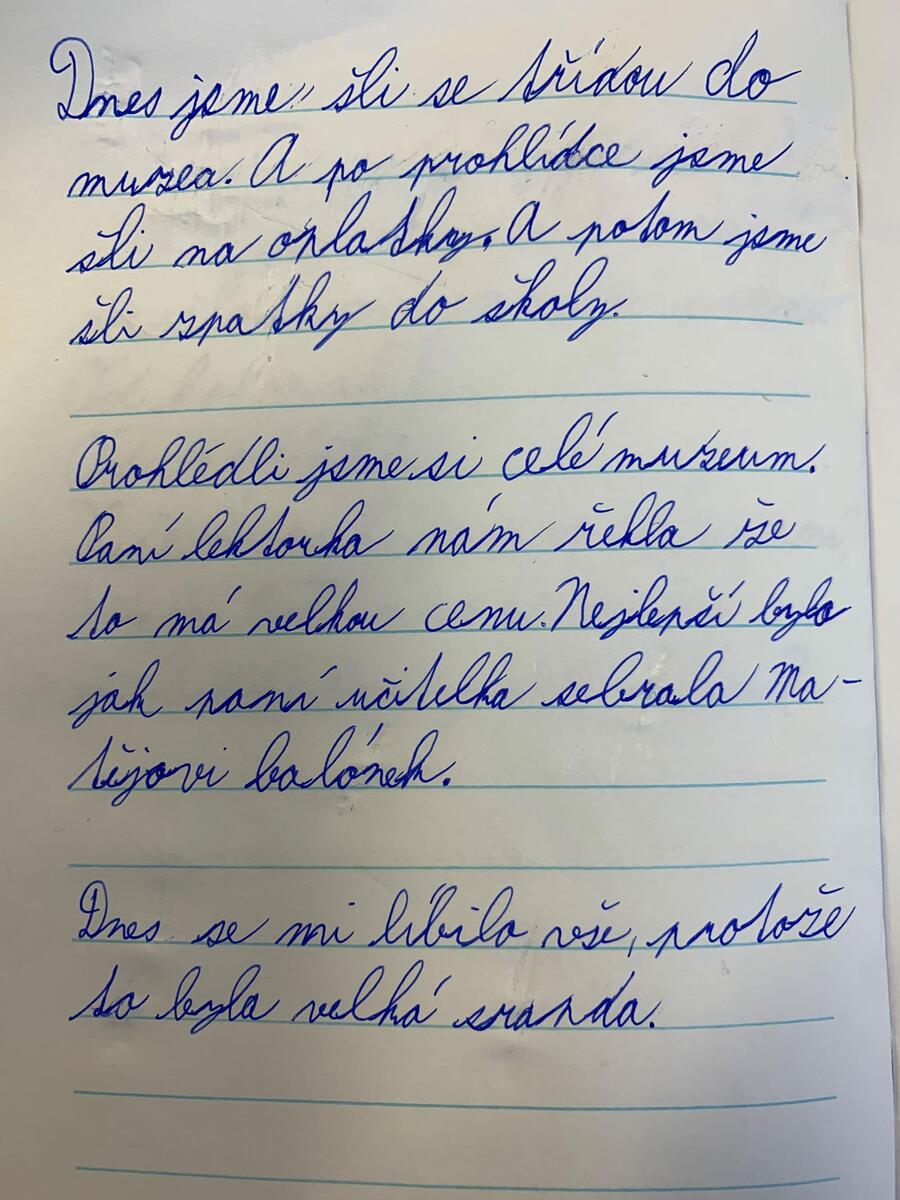 Dnes jsme šli se třídou do
muzea. A po prohlídce jsme
šli na oplatky. A potom jsme
šli zpatky do školy.
Prohlédli jsme si celé muzeum.
Paní lektorka nám řekla že
to má velkou cenu. Nejlepší bylo
jak paní učitelka sebrala Ma-
tějovi balónek.
Dnes se mi líbilo vše, protože
to byla velká sranda.